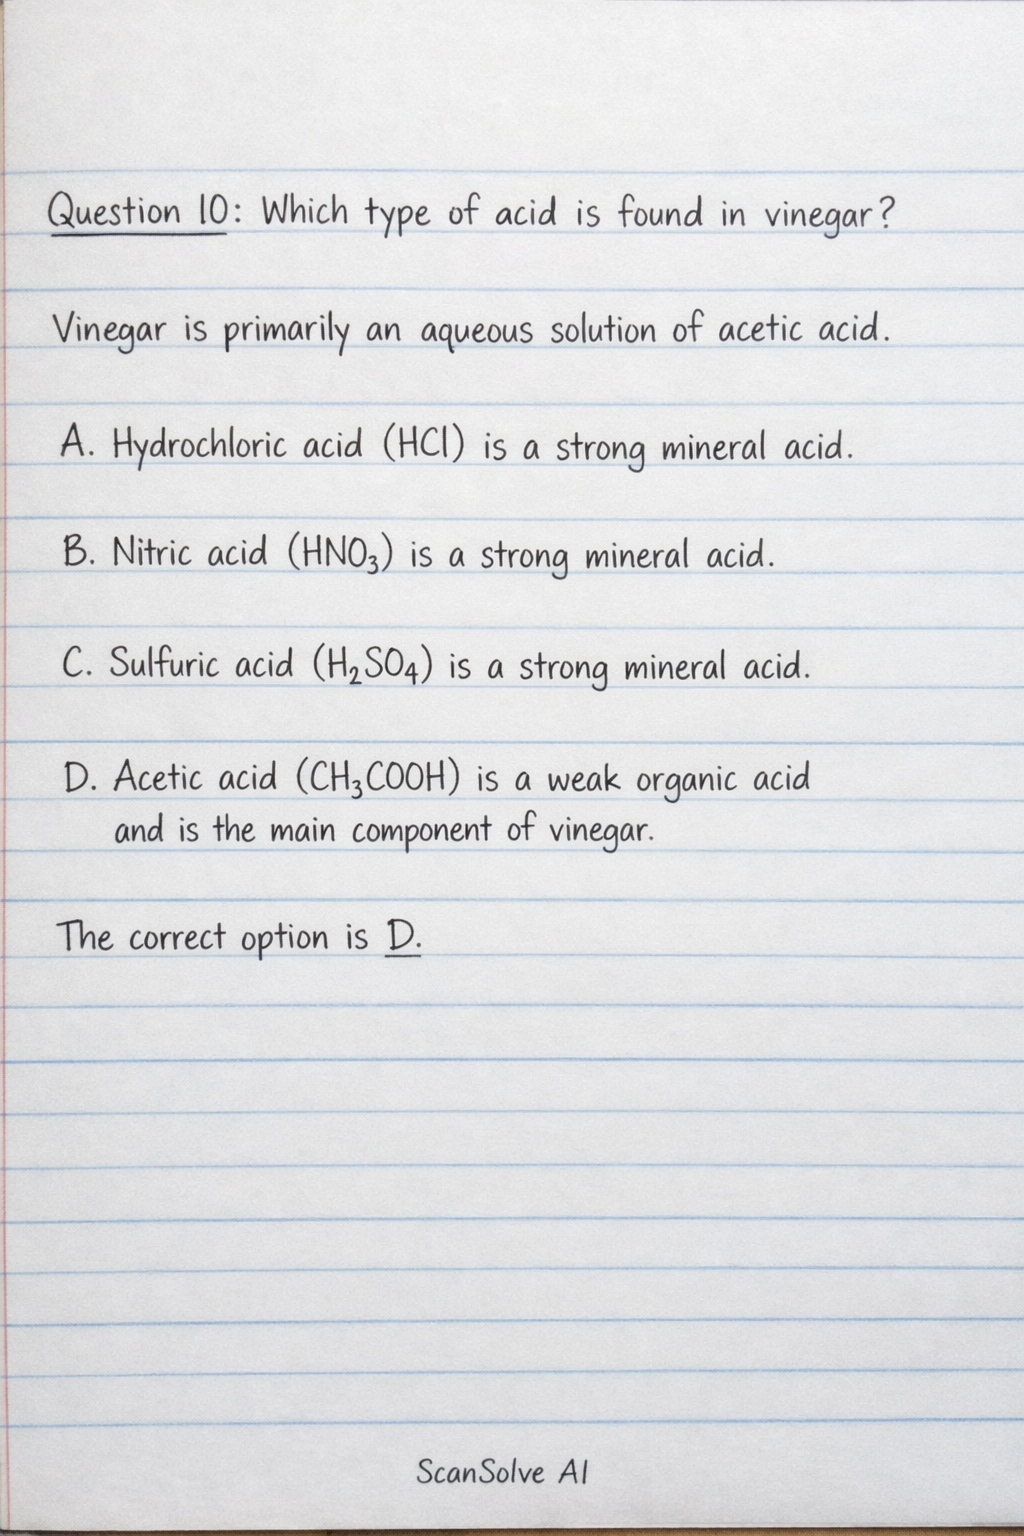 Question 10: Which type of acid is found in vinegar?
Vinegar is primarily an aqueous solution of acetic acid.
A. Hydrochloric acid (HCl) is a strong mineral acid.
B. Nitric acid (HNO₃) is a strong mineral acid.
C. Sulfuric acid (H₂SO₄) is a strong mineral acid.
D. Acetic acid (CH₃COOH) is a weak organic acid
and is the main component of vinegar.
The correct option is D.
ScanSolve AI